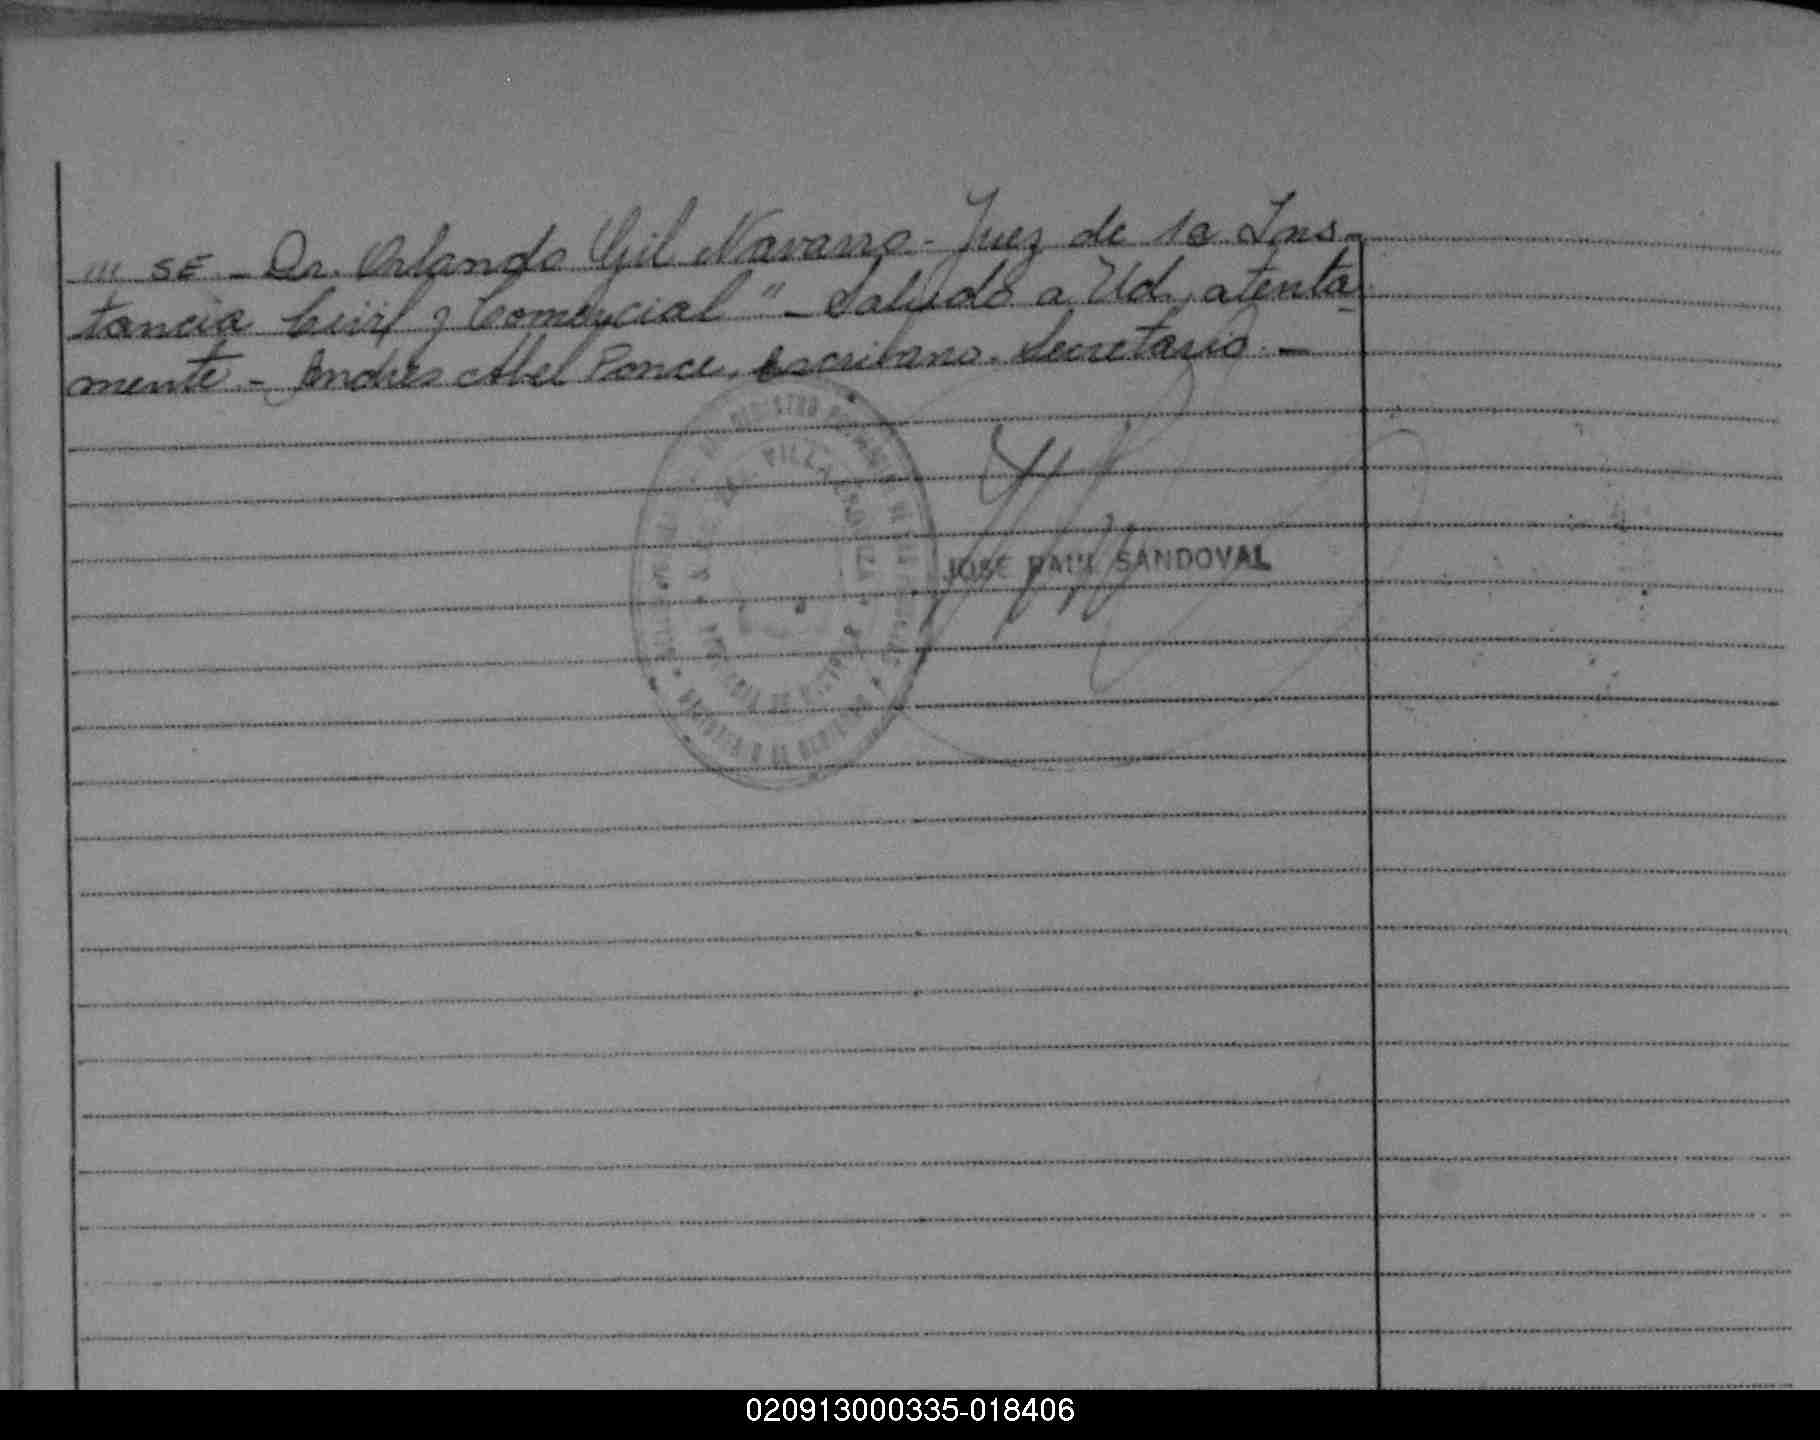 /// SE - Dr. Orlando Gil Navarro - Juez de 1a Ins-
tancia Civil y Comercial" - Saludo a Ud. atenta-
mente - Andres Abel Ponce. Escribano. Secretario. -
JOSE RAUL SANDOVAL
020913000335-018406